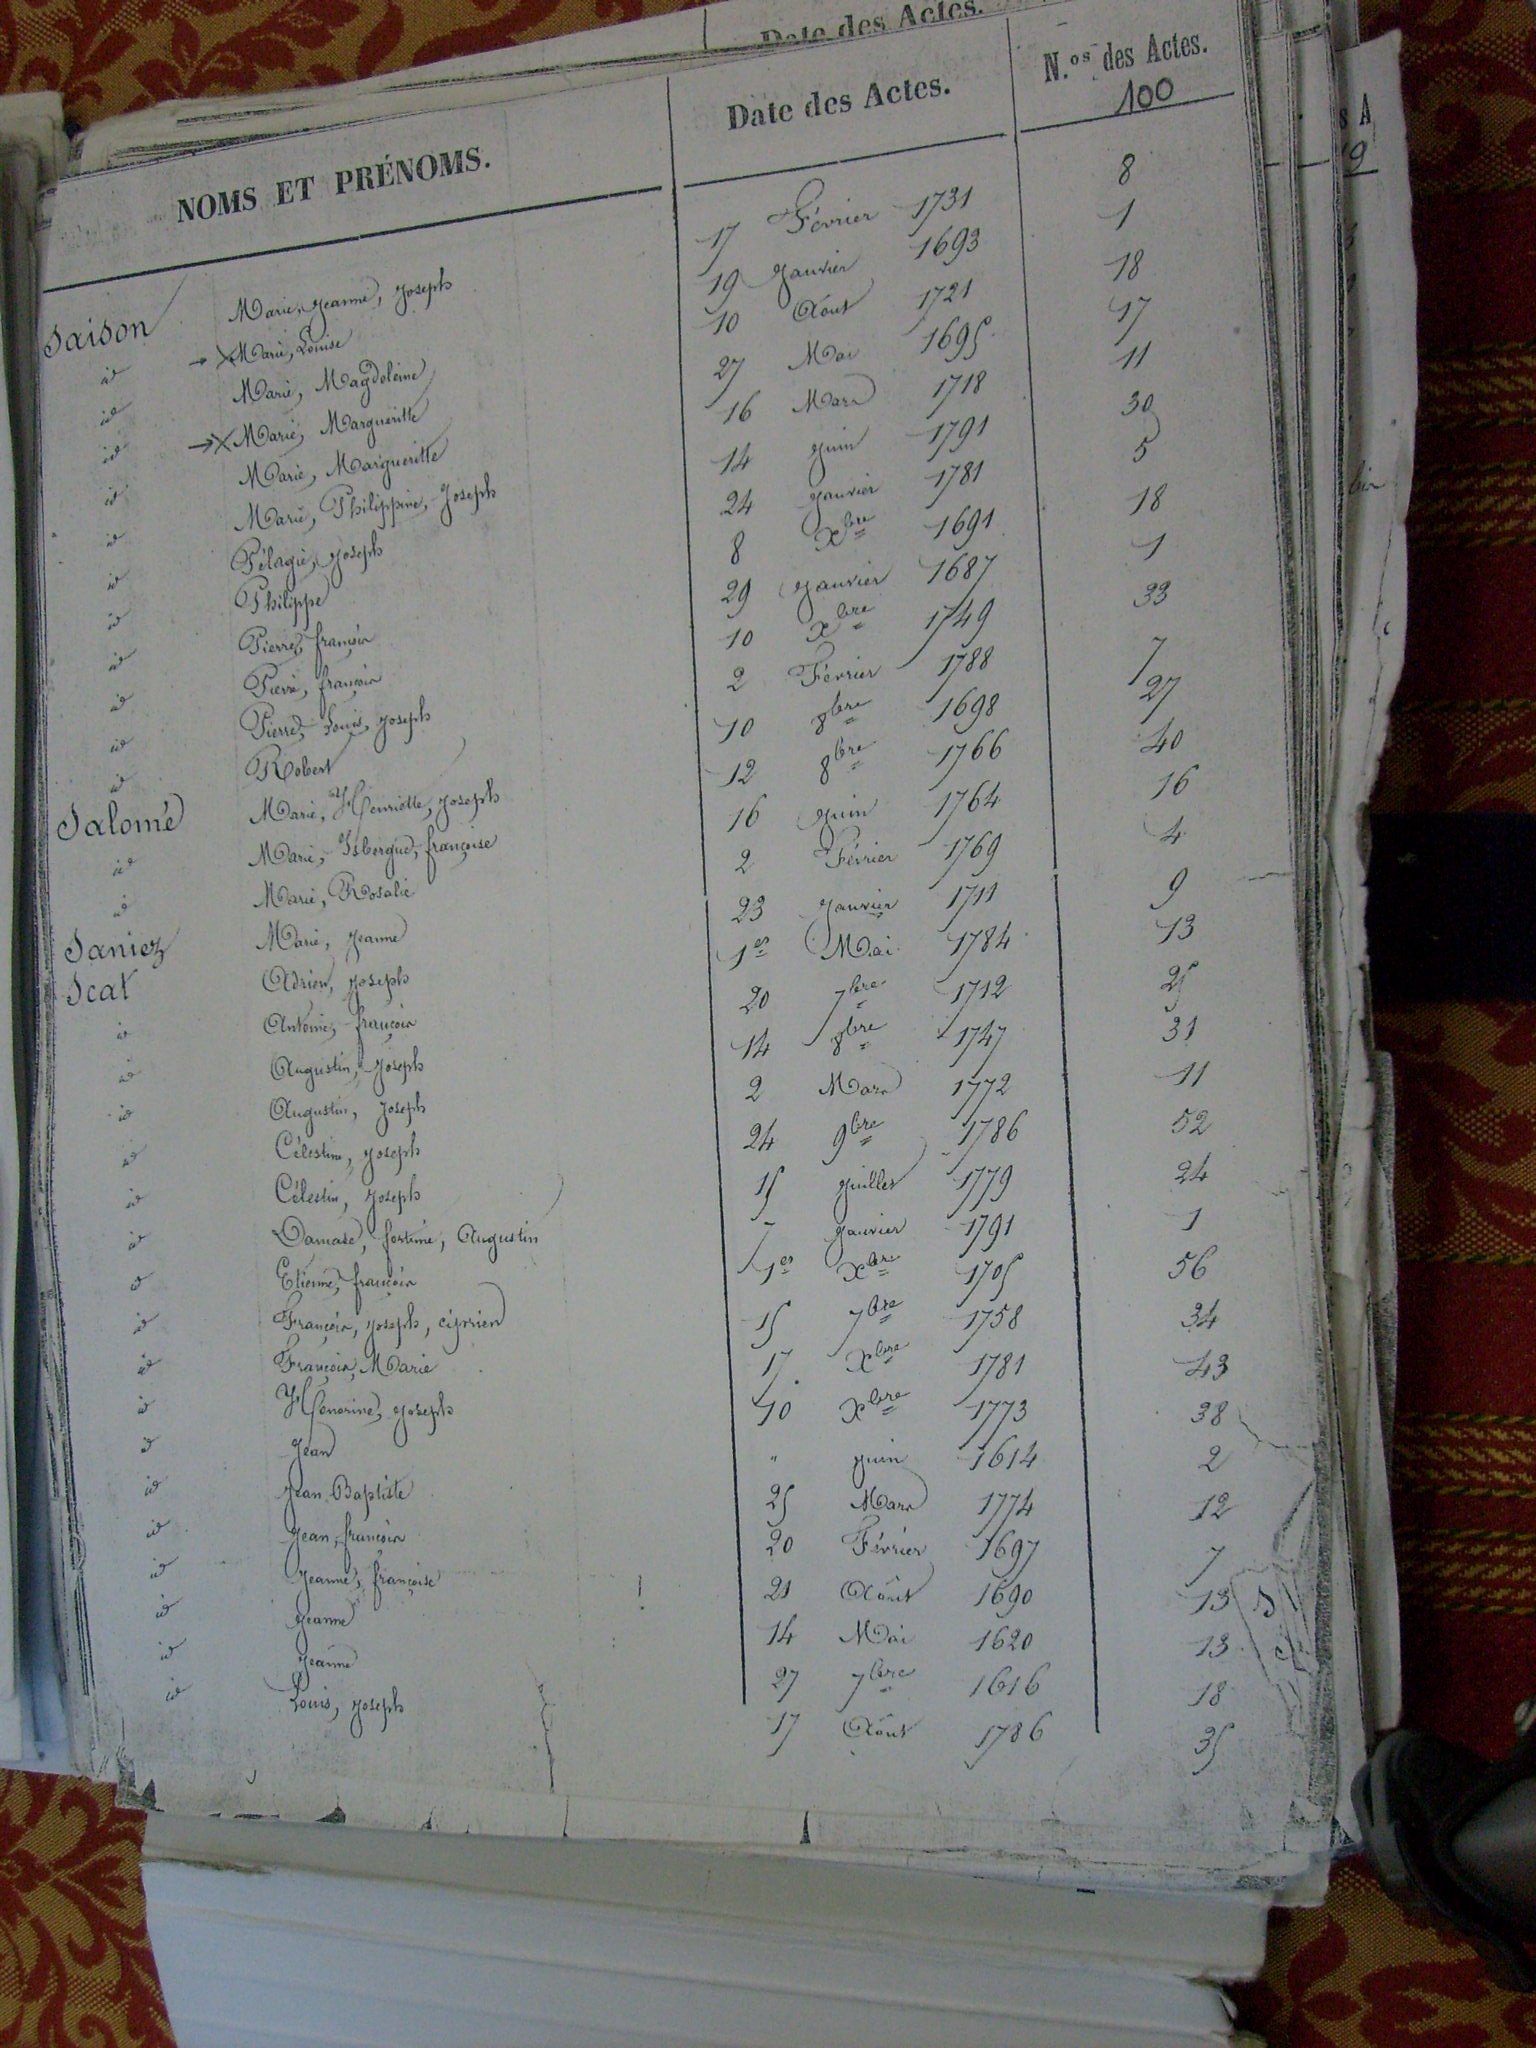 Date des Actes.
NOMS ET PRÉNOMS. Date des Actes. N.os des Actes.
100
Saison Marie, Jeanne, Joseph 17 Février 1731 8
id → X Marie, Louise 19 Janvier 1693 1
id Marie, Magdeleine 10 Aout 1721 18
id → X Marie, Margueritte 27 Mai 1695 17
id Marie, Margueritte 16 Mars 1718 11
id Marie, Philippine, Joseph 14 Juin 1791 30
id Pélagie, Joseph 24 Janvier 1781 5
id Philippe 8 Xbre 1691 18
id Pierre, françois 29 Janvier 1687 1
id Pierre, françois 10 Xbre 1749 33
id Pierre, Louis, Joseph 2 Février 1788 7
id Robert 10 8bre 1698 27
Salomé Marie, Henriette, Joseph 12 8bre 1766 40
id Marie, Isbergue, françoise 16 Juin 1764 16
id Marie, Rosalie 2 Février 1769 4
Saniez Marie, Jeanne 23 Janvier 1711 9
Scat Adrien, Joseph 1er Mai 1784 13
id Antoine, françois 20 7bre 1712 25
id Augustin, Joseph 14 8bre 1747 31
id Augustin, Joseph 2 Mars 1772 11
id Célestine, Joseph 24 9bre 1786 52
id Célestin, Joseph 15 Juillet 1779 24
id Damase, fortuné, Augustin 7 Janvier 1791 1
id Etienne, françois 1er Xbre 1705 56
id François, Joseph, Ciprien 15 7bre 1758 34
id François, Marie 17 Xbre 1781 43
id Honorine, Joseph 10 Xbre 1773 38
id Jean " Juin 1614 2
id Jean Baptiste 25 Mars 1774 12
id Jean, françois 20 Février 1697 7
id Jeanne, françoise 21 Août 1690 13
id Jeanne 14 Mai 1620 13
id Jeanne 27 7bre 1616 18
id Louis, Joseph 17 Août 1786 35